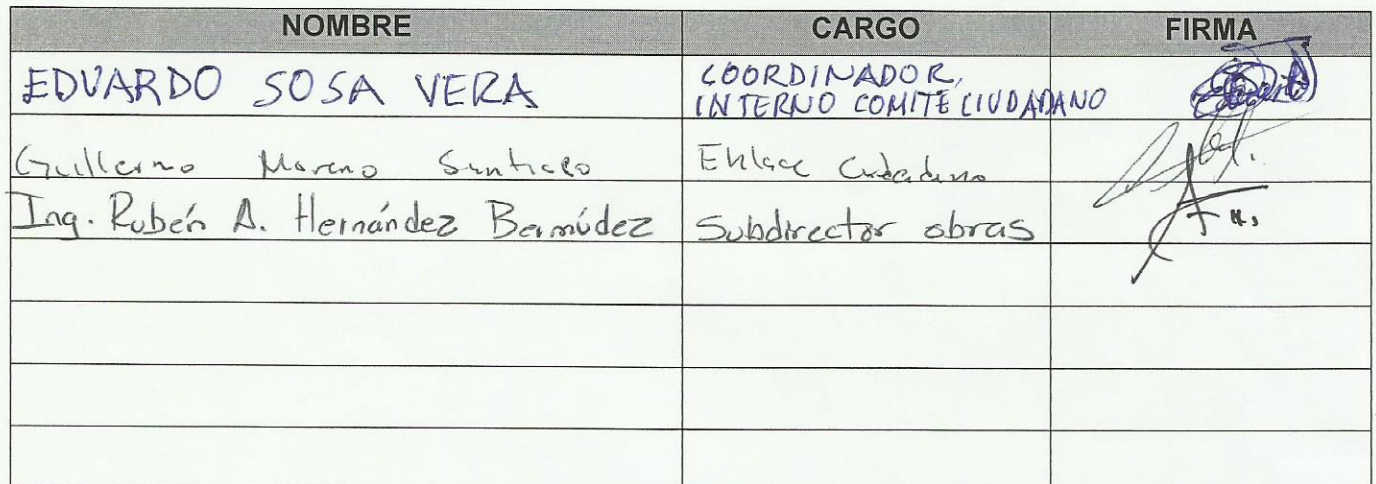 NOMBRE CARGO FIRMA
EDUARDO SOSA VERA COORDINADOR,
INTERNO COMITÉ CIUDADANO
Guillermo Moreno Santiago Enlace Ciudadano
Ing. Rubén A. Hernández Bermúdez Subdirector obras